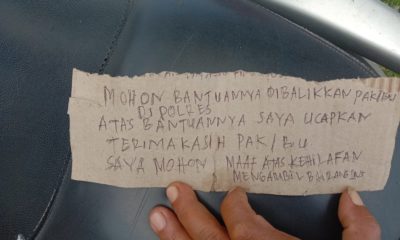 MOHON BANTUANNYA DIBALIKKAN PAK/BU
DI POLRES
ATAS BANTUANNYA SAYA UCAPKAN
TERIMAKASIH PAK/BU
SAYA MOHON MAAF ATAS KEHILAFAN
MENGAMBIL